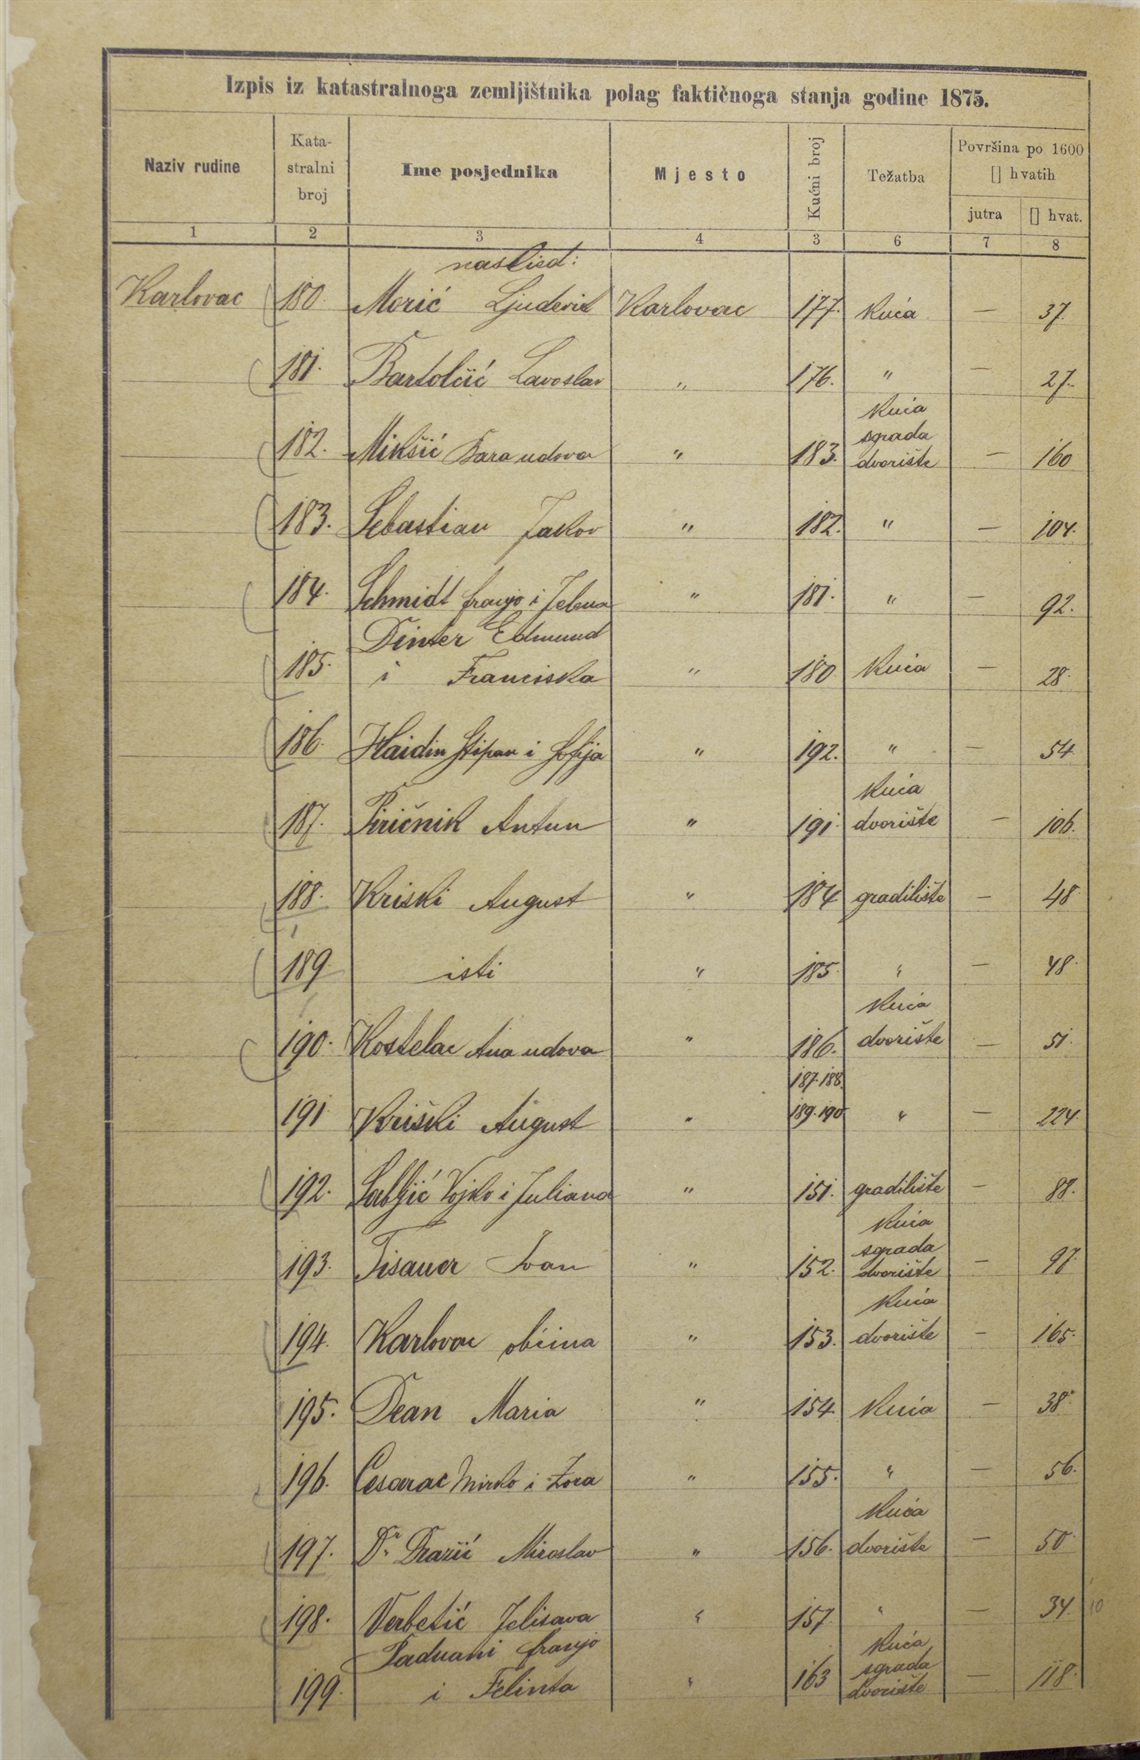 Izpis iz katastralnoga zemljištnika polag faktičnoga stanja godine 1875.
Naziv rudine Kata- stralni broj Ime posjednika Mjesto Kućni broj Težatba Površina po 1600 [] hvatih
jutra [] hvat.
1 2 3 4 3 6 7 8
naslied:
Karlovac 180 Morić Ljudevit Karlovac 177. kuća — 37
181. Bartolčić Lavoslav „ 176. „ — 27.
kuća
sgrada
182. Mikšić Bara udova „ 183. dvorište — 160
183. Sebastian Jakov „ 182. „ — 104.
184. Schmidt franjo i Jelena „ 181. „ — 92.
Dinter Edmund
185. i Franciska „ 180 kuća — 28.
186. Haidin Stipan i Sofija „ 192. „ — 54
kuća
187. Piričnik Antun „ 191. dvorište — 106.
188. Kriski August „ 184 gradilište — 48
189 isti „ 185 „ — 48.
kuća
190. Kostelac Ana udova „ 186. dvorište — 51.
187.188.
191 Kriški August „ 189.190 „ — 224
192. Sabljić Vojko i Juliana „ 151. gradilište — 88.
kuća
sgrada
193. Tisauer Ivan „ 152. dvorište — 97.
kuća
194. Karlovac občina „ 153. dvorište — 165.
195. Dean Maria „ 154. kuća — 38.
196. Cesarac Mirko i Zora „ 155. „ — 56.
kuća
197. Dr. Miroslav „ 156. dvorište — 50
198. Verbetić Jelisava „ 157 „ — 34 10
Paduani franjo
kuća
sgrada
199. i Felinta „ 163 dvorište — 118.